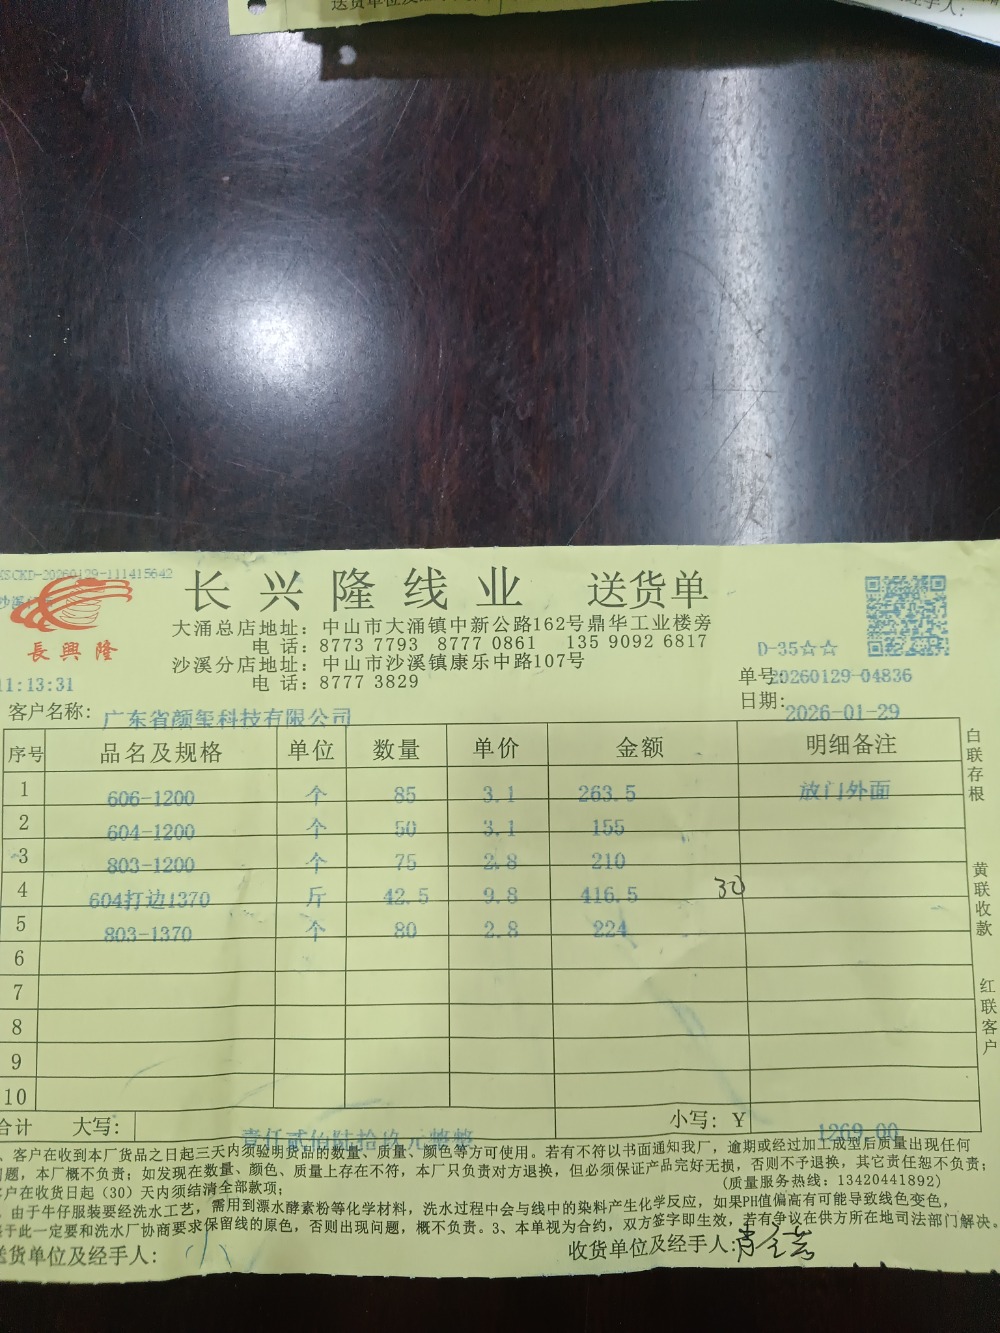 送货单位及经手人:
XSCKD-20260129-111415642
長興隆
11:13:31
长兴隆线业 送货单
大涌总店地址: 中山市大涌镇中新公路162号鼎华工业楼旁
电 话: 8773 7793 8777 0861 135 9092 6817
沙溪分店地址: 中山市沙溪镇康乐中路107号
电 话: 8777 3829
D-35☆☆
单号: 20260129-04836
日期: 2026-01-29
客户名称: 广东省颜玺科技有限公司
序号 品名及规格 单位 数量 单价 金额 明细备注
1 606-1200 个 85 3.1 263.5 放门外面
2 604-1200 个 50 3.1 155
3 803-1200 个 75 2.8 210
4 604打边1370 斤 42.5 9.8 416.5 30
5 803-1370 个 80 2.8 224
6
7
8
9
10
合计 大写: 壹仟贰佰陆拾玖元整整 小写: Y 1269.00
白联存根
黄联收款
红联客户
、客户在收到本厂货品之日起三天内须验明货品的数量、质量、颜色等方可使用。若有不符以书面通知我厂，逾期或经过加工成型后质量出现任何
问题，本厂概不负责；如发现在数量、颜色、质量上存在不符，本厂只负责对方退换，但必须保证产品完好无损，否则不予退换，其它责任恕不负责；
客户在收货日起（30）天内须结清全部款项； (质量服务热线：13420441892)
、由于牛仔服装要经洗水工艺，需用到漂水酵素粉等化学材料，洗水过程中会与线中的染料产生化学反应，如果PH值偏高有可能导致线色变色，
基于此一定要和洗水厂协商要求保留线的原色，否则出现问题，概不负责。3、本单视为合约，双方签字即生效，若有争议在供方所在地司法部门解决。
送货单位及经手人: 收货单位及经手人: